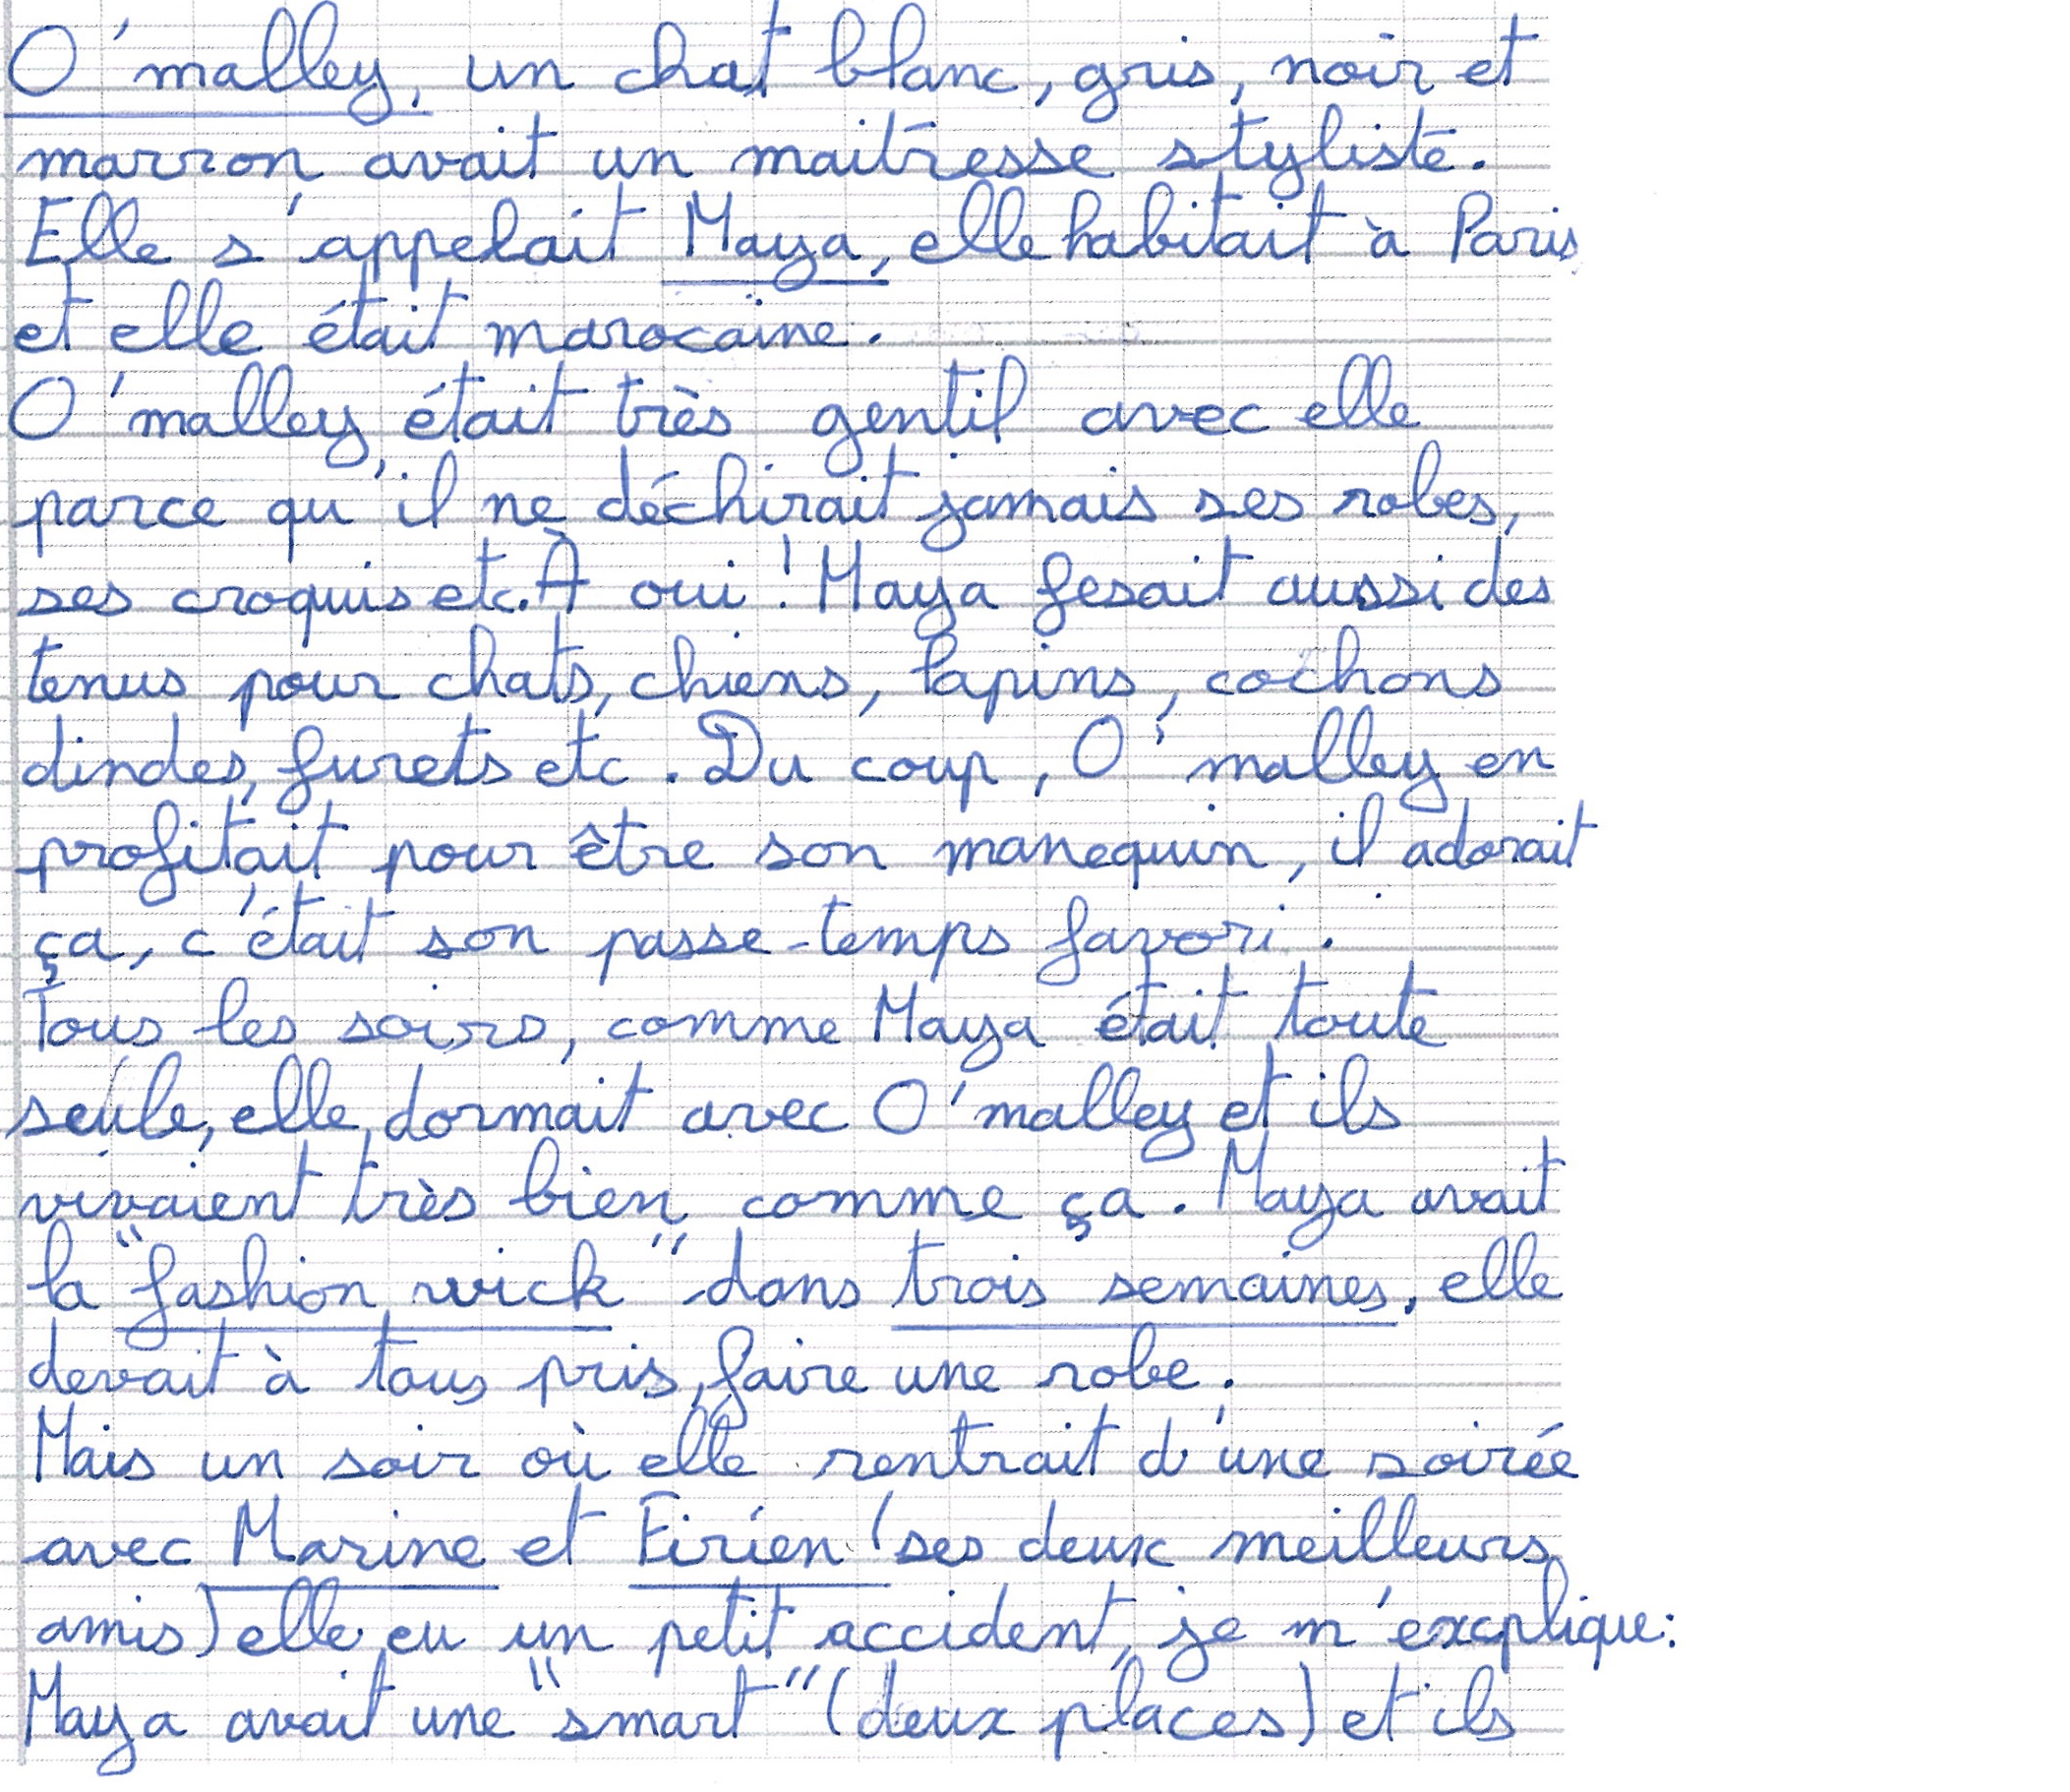 O'malley, un chat blanc, gris, noir et
marron avait un maitresse styliste.
Elle s'appelait Maya, elle habitait à Paris
et elle était marocaine.
O'malley était très gentil avec elle
parce qu'il ne déchirait jamais ses robes,
ses croquis etc. À oui ! Maya fesait aussi des
tenus pour chats, chiens, lapins, cochons
dindes, furets etc. Du coup, O'malley en
profitait pour être son manequin, il adorait
ça, c'était son passe-temps favori.
Tous les soirs, comme Maya était toute
seule, elle dormait avec O'malley et ils
vivaient très bien comme ça. Maya avait
la "fashion wick" dans trois semaines, elle
devait à tous pris, faire une robe.
Mais un soir où elle rentrait d'une soirée
avec Marine et Firien (ses deux meilleurs
amis) elle eu un petit accident, je m'excplique:
Maya avait une "smart" (deux places) et ils